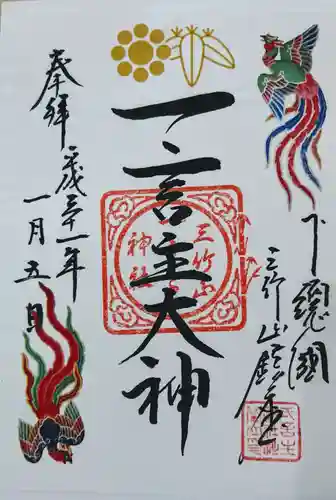 下総國
三竹山鎮座
一言主大神
三竹山
神社
奉拝
平成三十一年
一月五日